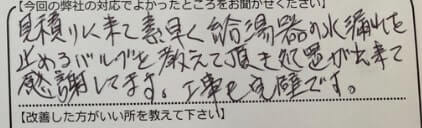 【今回の弊社の対応でよかったところをお聞かせください】
見積りに来て素早く給湯器の水漏れを
止めるバルブを教えて頂き処置が出来て
感謝してます。工事も完璧です。
【改善した方がいい所を教えて下さい】